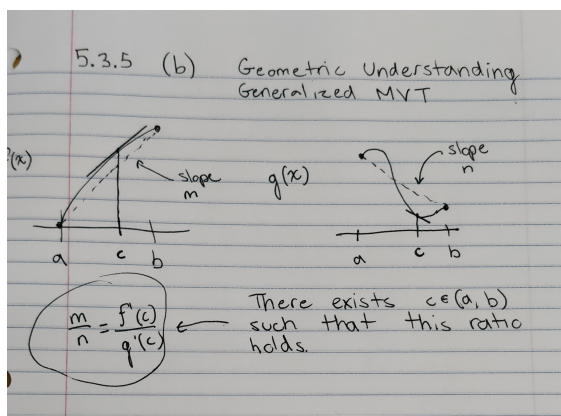 5.3.5 (b) Geometric Understanding
Generalized MVT
f(x)
slope
m
g(x)
slope
n
a c b
a c b
m/n = f'(c)/g'(c)
There exists c ∈ (a, b)
such that this ratio
holds.